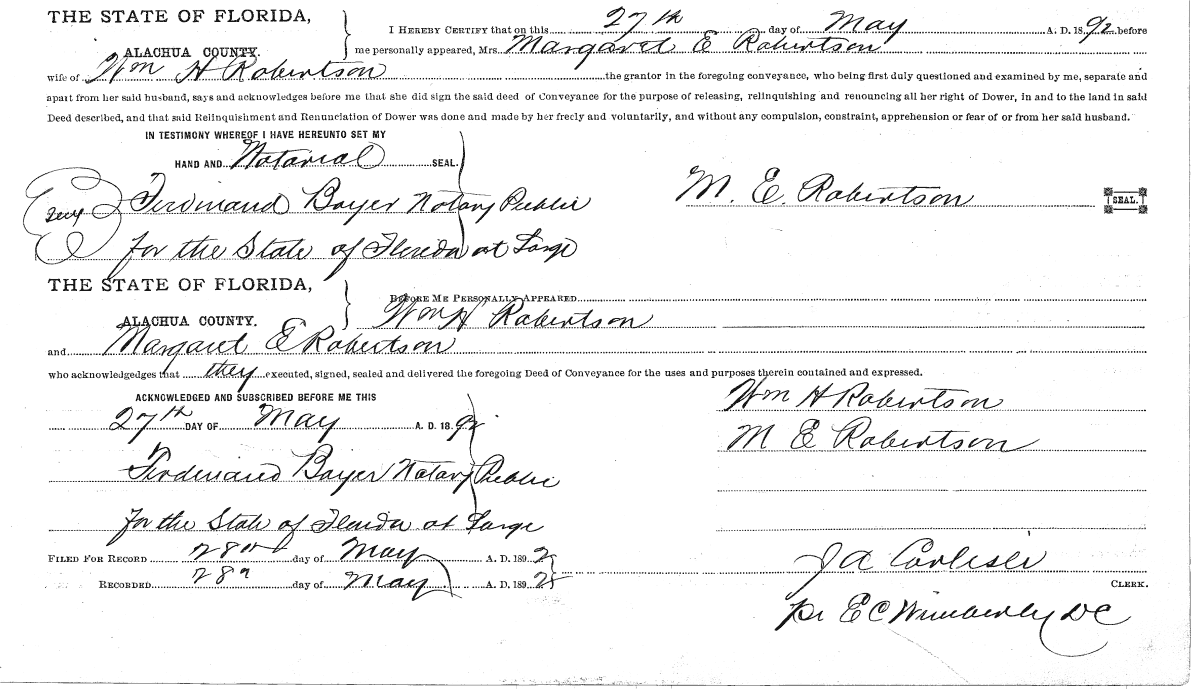 THE STATE OF FLORIDA,
ALACHUA COUNTY.
I HEREBY CERTIFY that on this 27th day of May A. D. 1892 before
me personally appeared, Mrs. Margaret E Robertson
wife of Wm H Robertson the grantor in the foregoing conveyance, who being first duly questioned and examined by me, separate and
apart from her said husband, says and acknowledges before me that she did sign the said deed of Conveyance for the purpose of releasing, relinquishing and renouncing all her right of Dower, in and to the land in said
Deed described, and that said Relinquishment and Renunciation of Dower was done and made by her freely and voluntarily, and without any compulsion, constraint, apprehension or fear of or from her said husband.
IN TESTIMONY WHEREOF I HAVE HEREUNTO SET MY
HAND AND Notarial SEAL.
Ferdinand Bayer Notary Public
M. E. Robertson SEAL.
for the State of Florida at Large
THE STATE OF FLORIDA,
ALACHUA COUNTY.
BEFORE ME PERSONALLY APPEARED
Wm H Robertson
and Margaret E Robertson
who acknowledgedges that they executed, signed, sealed and delivered the foregoing Deed of Conveyance for the uses and purposes therein contained and expressed.
ACKNOWLEDGED AND SUBSCRIBED BEFORE ME THIS
27th DAY OF May A. D. 1892
Wm H Robertson
M E Robertson
Ferdinand Bayer Notary Public
for the State of Florida at Large
FILED FOR RECORD 28th day of May A. D. 1892
RECORDED 28th day of May A. D. 1892
J A Carlisle
CLERK.
Pr E C Wimberly DC